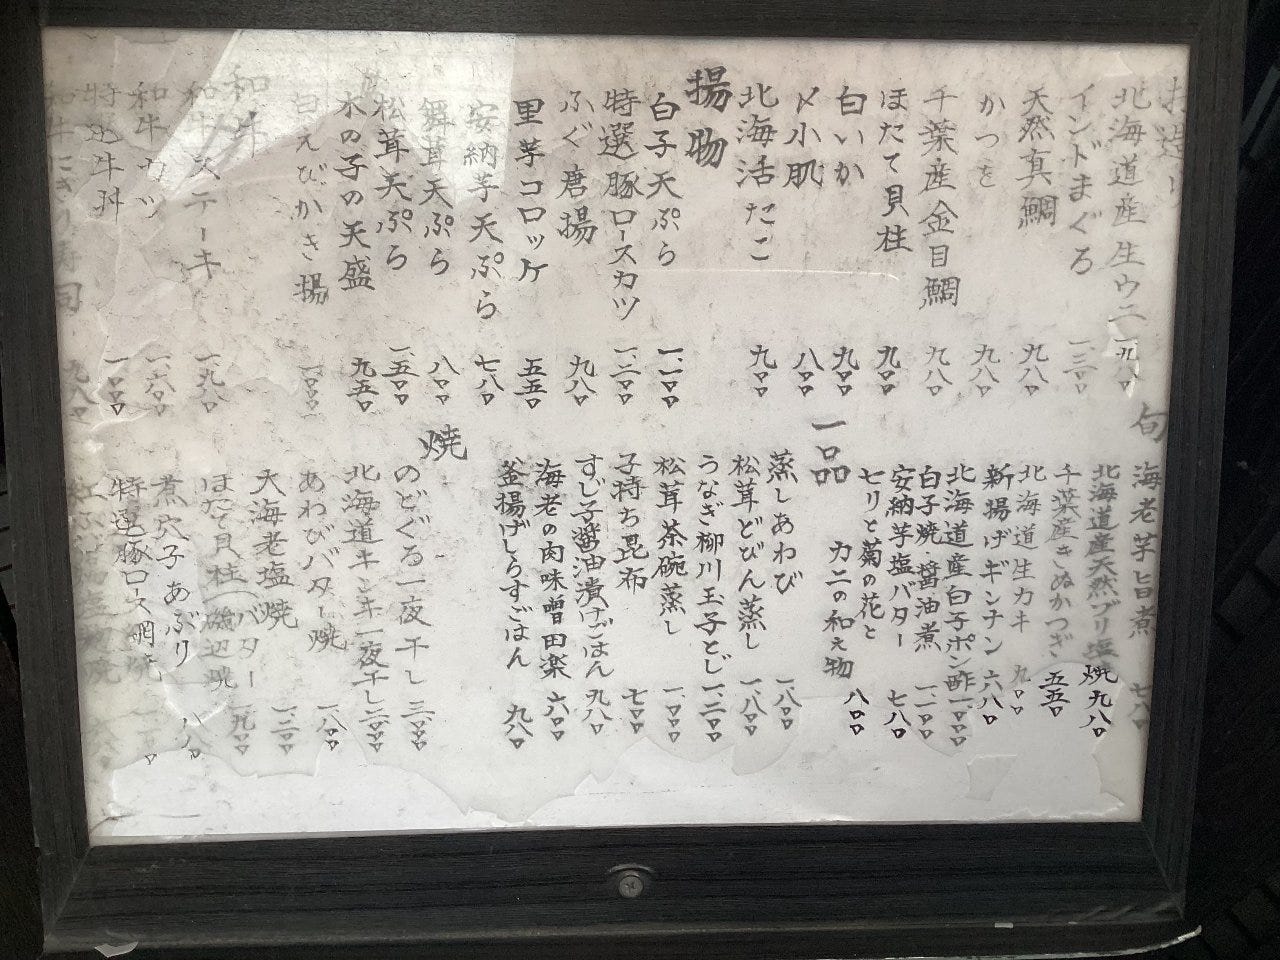 お造り
北海道産生ウニ 一、九八〇
インドまぐろ 一、三〇〇
天然真鯛 九八〇
かつを 九八〇
千葉産金目鯛 九八〇
ほたて貝柱 九〇〇
白いか 九〇〇
〆小肌 八〇〇
北海活たこ 九〇〇
揚物
白子天ぷら 一、一〇〇
特選豚ロースカツ 一、二〇〇
ふぐ唐揚 九八〇
里芋コロッケ 五五〇
安納芋天ぷら 七八〇
舞茸天ぷら 八〇〇
松茸天ぷら 一、五〇〇
木の子の天盛 九五〇
白えびかき揚 一、〇〇〇
和牛
和牛ステーキ 一、九八〇
和牛カツ 一、六八〇
特選牛丼 一、一〇〇
和牛にぎり寿司 九八〇
旬
海老芋旨煮 七八〇
北海道産天然ブリ塩焼 九八〇
千葉産きぬかつぎ 五五〇
北海道生カキ 九〇〇
新揚げギンナン 六八〇
北海道産白子ポン酢 一、〇〇〇
白子焼・醤油煮 一、一〇〇
安納芋塩バター 七八〇
セリと菊の花と
カニの和え物 八〇〇
一品
蒸しあわび 一、八〇〇
松茸どびん蒸し 一、八〇〇
うなぎ柳川玉子とじ 一、二〇〇
松茸茶碗蒸し 一、〇〇〇
子持ち昆布 七〇〇
すじ子醤油漬けごはん 九八〇
海老の肉味噌田楽 六〇〇
釜揚げしらすごはん 九八〇
焼
のどぐろ一夜干し 三、〇〇〇
北海道キンキ一夜干し 二、〇〇〇
あわびバター焼 一、八〇〇
大海老塩焼 一、二〇〇
ほたて貝柱(バター 磯辺焼 一、九〇〇
煮穴子あぶり 八八〇
特選豚ロース網焼